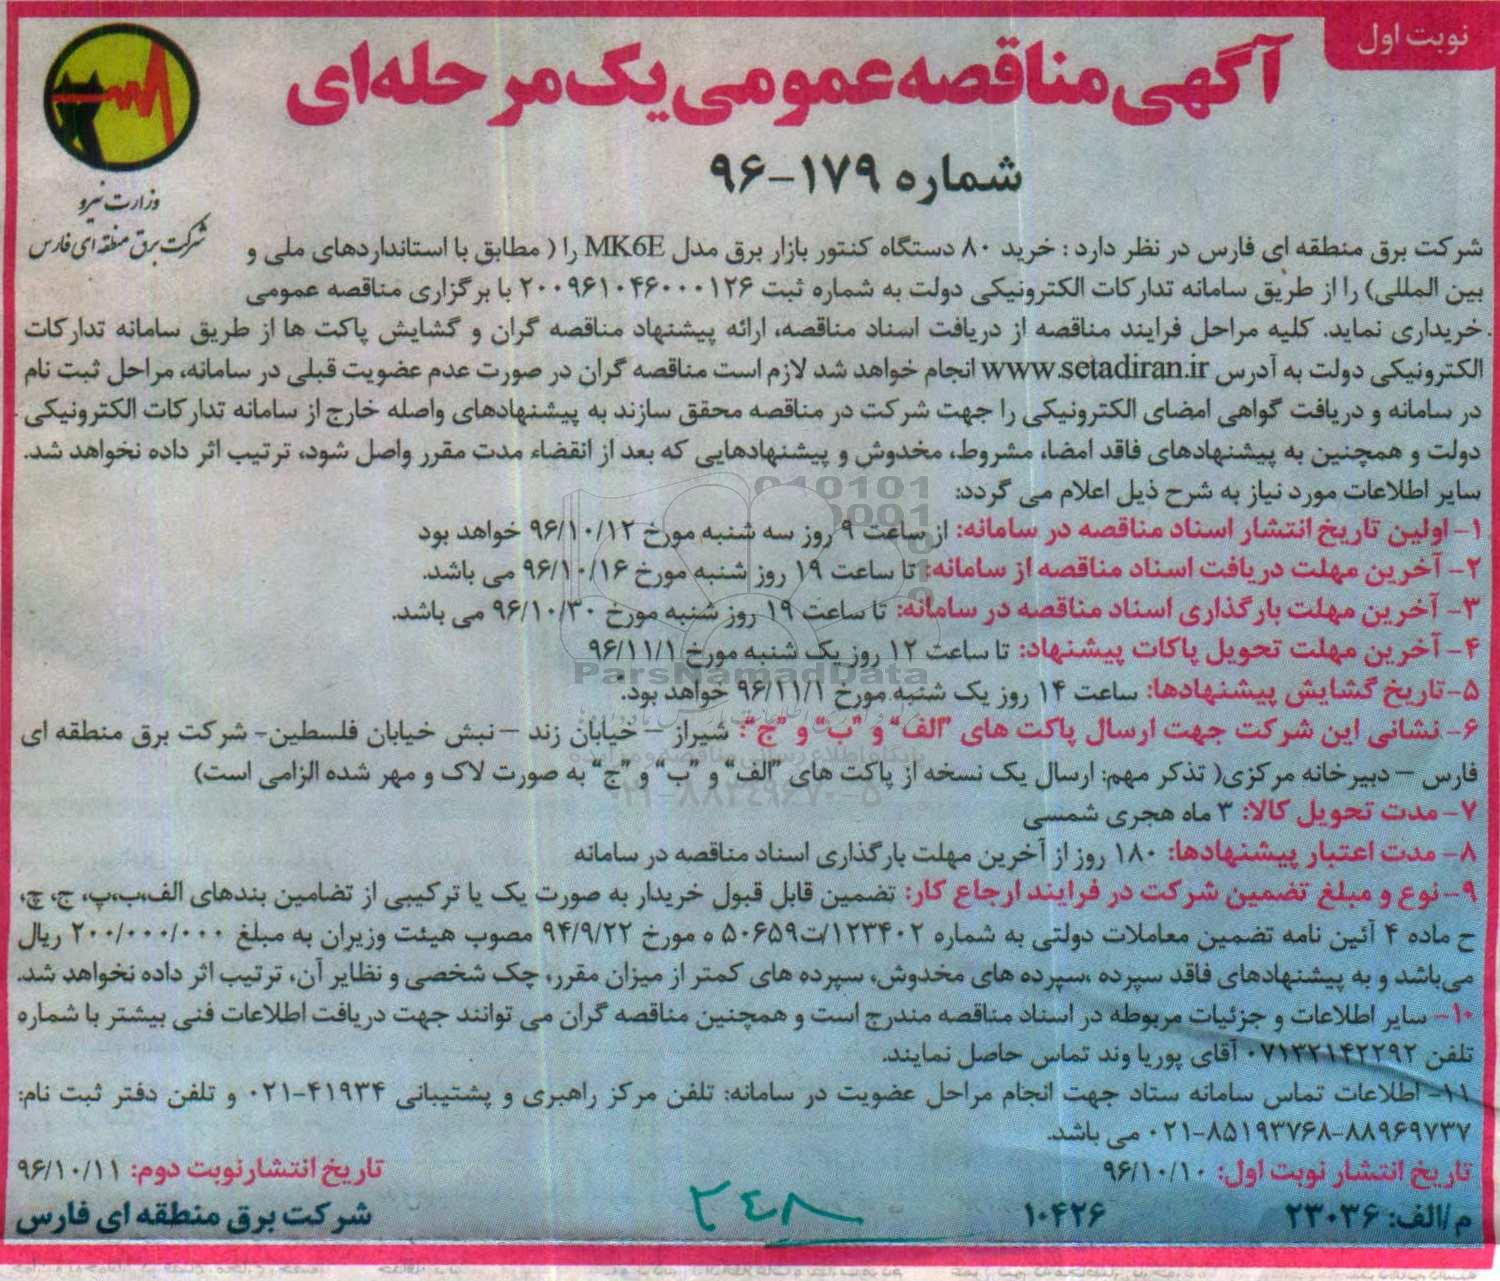 نوبت اول
آگهی مناقصه عمومی یک مرحله‌ای
شماره ۱۷۹-۹۶
وزارت نیرو
شرکت برق منطقه ای فارس
شرکت برق منطقه ای فارس در نظر دارد : خرید ۸۰ دستگاه کنتور بازار برق مدل MK6E را ( مطابق با استانداردهای ملی و
بین المللی) را از طریق سامانه تدارکات الکترونیکی دولت به شماره ثبت ۲۰۰۹۶۱۰۴۶۰۰۰۱۲۶ با برگزاری مناقصه عمومی
خریداری نماید. کلیه مراحل فرایند مناقصه از دریافت اسناد مناقصه، ارائه پیشنهاد مناقصه گران و گشایش پاکت ها از طریق سامانه تدارکات
الکترونیکی دولت به آدرس www.setadiran.ir انجام خواهد شد لازم است مناقصه گران در صورت عدم عضویت قبلی در سامانه، مراحل ثبت نام
در سامانه و دریافت گواهی امضای الکترونیکی را جهت شرکت در مناقصه محقق سازند به پیشنهادهای واصله خارج از سامانه تدارکات الکترونیکی
دولت و همچنین به پیشنهادهای فاقد امضا، مشروط، مخدوش و پیشنهادهایی که بعد از انقضاء مدت مقرر واصل شود، ترتیب اثر داده نخواهد شد.
سایر اطلاعات مورد نیاز به شرح ذیل اعلام می گردد:
۱- اولین تاریخ انتشار اسناد مناقصه در سامانه: از ساعت ۹ روز سه شنبه مورخ ۹۶/۱۰/۱۲ خواهد بود
۲- آخرین مهلت دریافت اسناد مناقصه از سامانه: تا ساعت ۱۹ روز شنبه مورخ ۹۶/۱۰/۱۶ می باشد.
۳- آخرین مهلت بارگذاری اسناد مناقصه در سامانه: تا ساعت ۱۹ روز شنبه مورخ ۹۶/۱۰/۳۰ می باشد.
۴- آخرین مهلت تحویل پاکات پیشنهاد: تا ساعت ۱۲ روز یک شنبه مورخ ۹۶/۱۱/۱
ParsNamadData
۵-تاریخ گشایش پیشنهادها: ساعت ۱۴ روز یک شنبه مورخ ۹۶/۱۱/۱ خواهد بود.
۶- نشانی این شرکت جهت ارسال پاکت های "الف" و "ب" و "ج": شیراز – خیابان زند – نبش خیابان فلسطین- شرکت برق منطقه ای
فارس – دبیرخانه مرکزی( تذکر مهم: ارسال یک نسخه از پاکت های "الف" و "ب" و "ج" به صورت لاک و مهر شده الزامی است)
۰۲۱-۸۸۳۴۹۶۷۰-۵
۷- مدت تحویل کالا: ۳ ماه هجری شمسی
۸- مدت اعتبار پیشنهادها: ۱۸۰ روز از آخرین مهلت بارگذاری اسناد مناقصه در سامانه
۹- نوع و مبلغ تضمین شرکت در فرایند ارجاع کار: تضمین قابل قبول خریدار به صورت یک یا ترکیبی از تضامین بندهای الف،ب،پ، ج، چ،
ح ماده ۴ آئین نامه تضمین معاملات دولتی به شماره ۱۲۳۴۰۲/ت۵۰۶۵۹ ه مورخ ۹۴/۹/۲۲ مصوب هیئت وزیران به مبلغ ۲۰۰/۰۰۰/۰۰۰ ریال
می‌باشد و به پیشنهادهای فاقد سپرده ،سپرده های مخدوش، سپرده های کمتر از میزان مقرر، چک شخصی و نظایر آن، ترتیب اثر داده نخواهد شد.
۱۰- سایر اطلاعات و جزئیات مربوطه در اسناد مناقصه مندرج است و همچنین مناقصه گران می توانند جهت دریافت اطلاعات فنی بیشتر با شماره
تلفن ۰۷۱۳۲۱۴۲۲۹۲ آقای پوریا وند تماس حاصل نمایند.
۱۱- اطلاعات تماس سامانه ستاد جهت انجام مراحل عضویت در سامانه: تلفن مرکز راهبری و پشتیبانی ۴۱۹۳۴-۰۲۱ و تلفن دفتر ثبت نام:
۸۸۹۶۹۷۳۷-۸۵۱۹۳۷۶۸-۰۲۱ می باشد.
تاریخ انتشار نوبت اول: ۹۶/۱۰/۱۰ تاریخ انتشارنوبت دوم: ۹۶/۱۰/۱۱
م/الف: ۲۳۰۳۶ ۱۰۴۲۶ شرکت برق منطقه ای فارس
۳۴۸